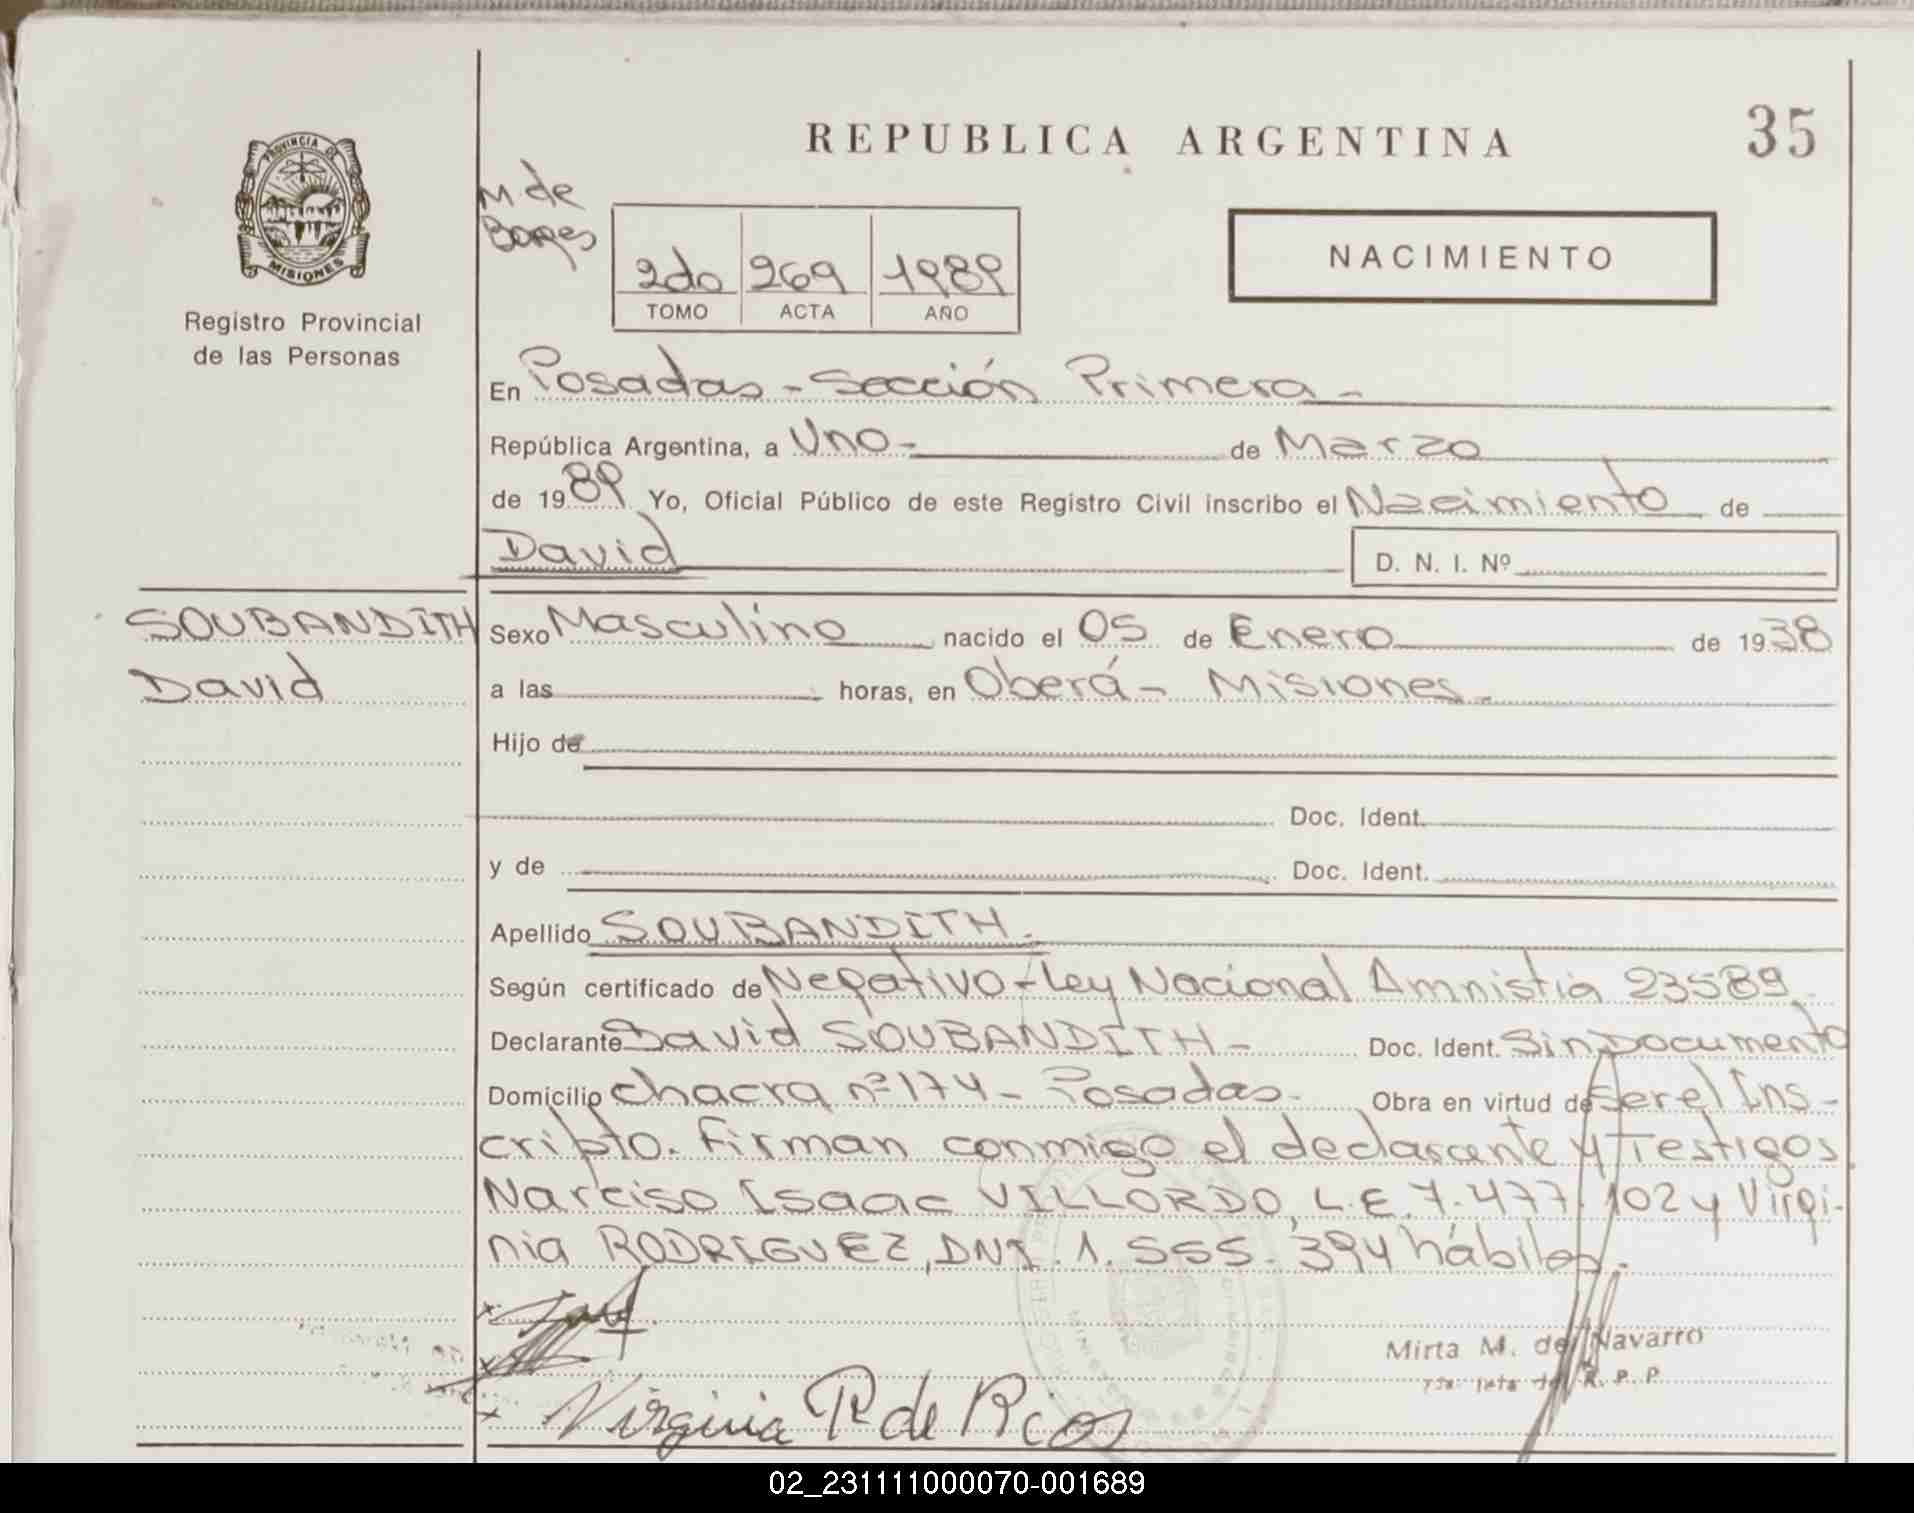 REPUBLICA ARGENTINA
35
PROVINCIA DE
MISIONES
Registro Provincial
de las Personas
M. de
Borges
2do 269 1989
TOMO ACTA AÑO
NACIMIENTO
En Posadas - Sección Primera -
República Argentina, a Uno - de Marzo
de 1989 Yo, Oficial Público de este Registro Civil inscribo el Nacimiento de
David
D. N. I. Nº
SOUBANDITH
David
Sexo Masculino nacido el 05 de Enero de 1938
a las horas, en Oberá - Misiones -
Hijo de
Doc. Ident.
y de Doc. Ident.
Apellido SOUBANDITH.
Según certificado de Negativo - Ley Nacional Amnistia 23589
Declarante David SOUBANDITH - Doc. Ident. Sin Documento
Domicilio chacra nº 174 - Posadas - Obra en virtud de ser el Ins-
cripto. Firman conmigo el declarante y Testigos
Narciso Isaac VILLORDO, L.E. 7.477.102 y Virgi-
nia RODRIGUEZ, DNI. 1.555.394 hábiles.
Mirta M. de Navarro
R. P. P
Virginia R de Rios
02_231111000070-001689